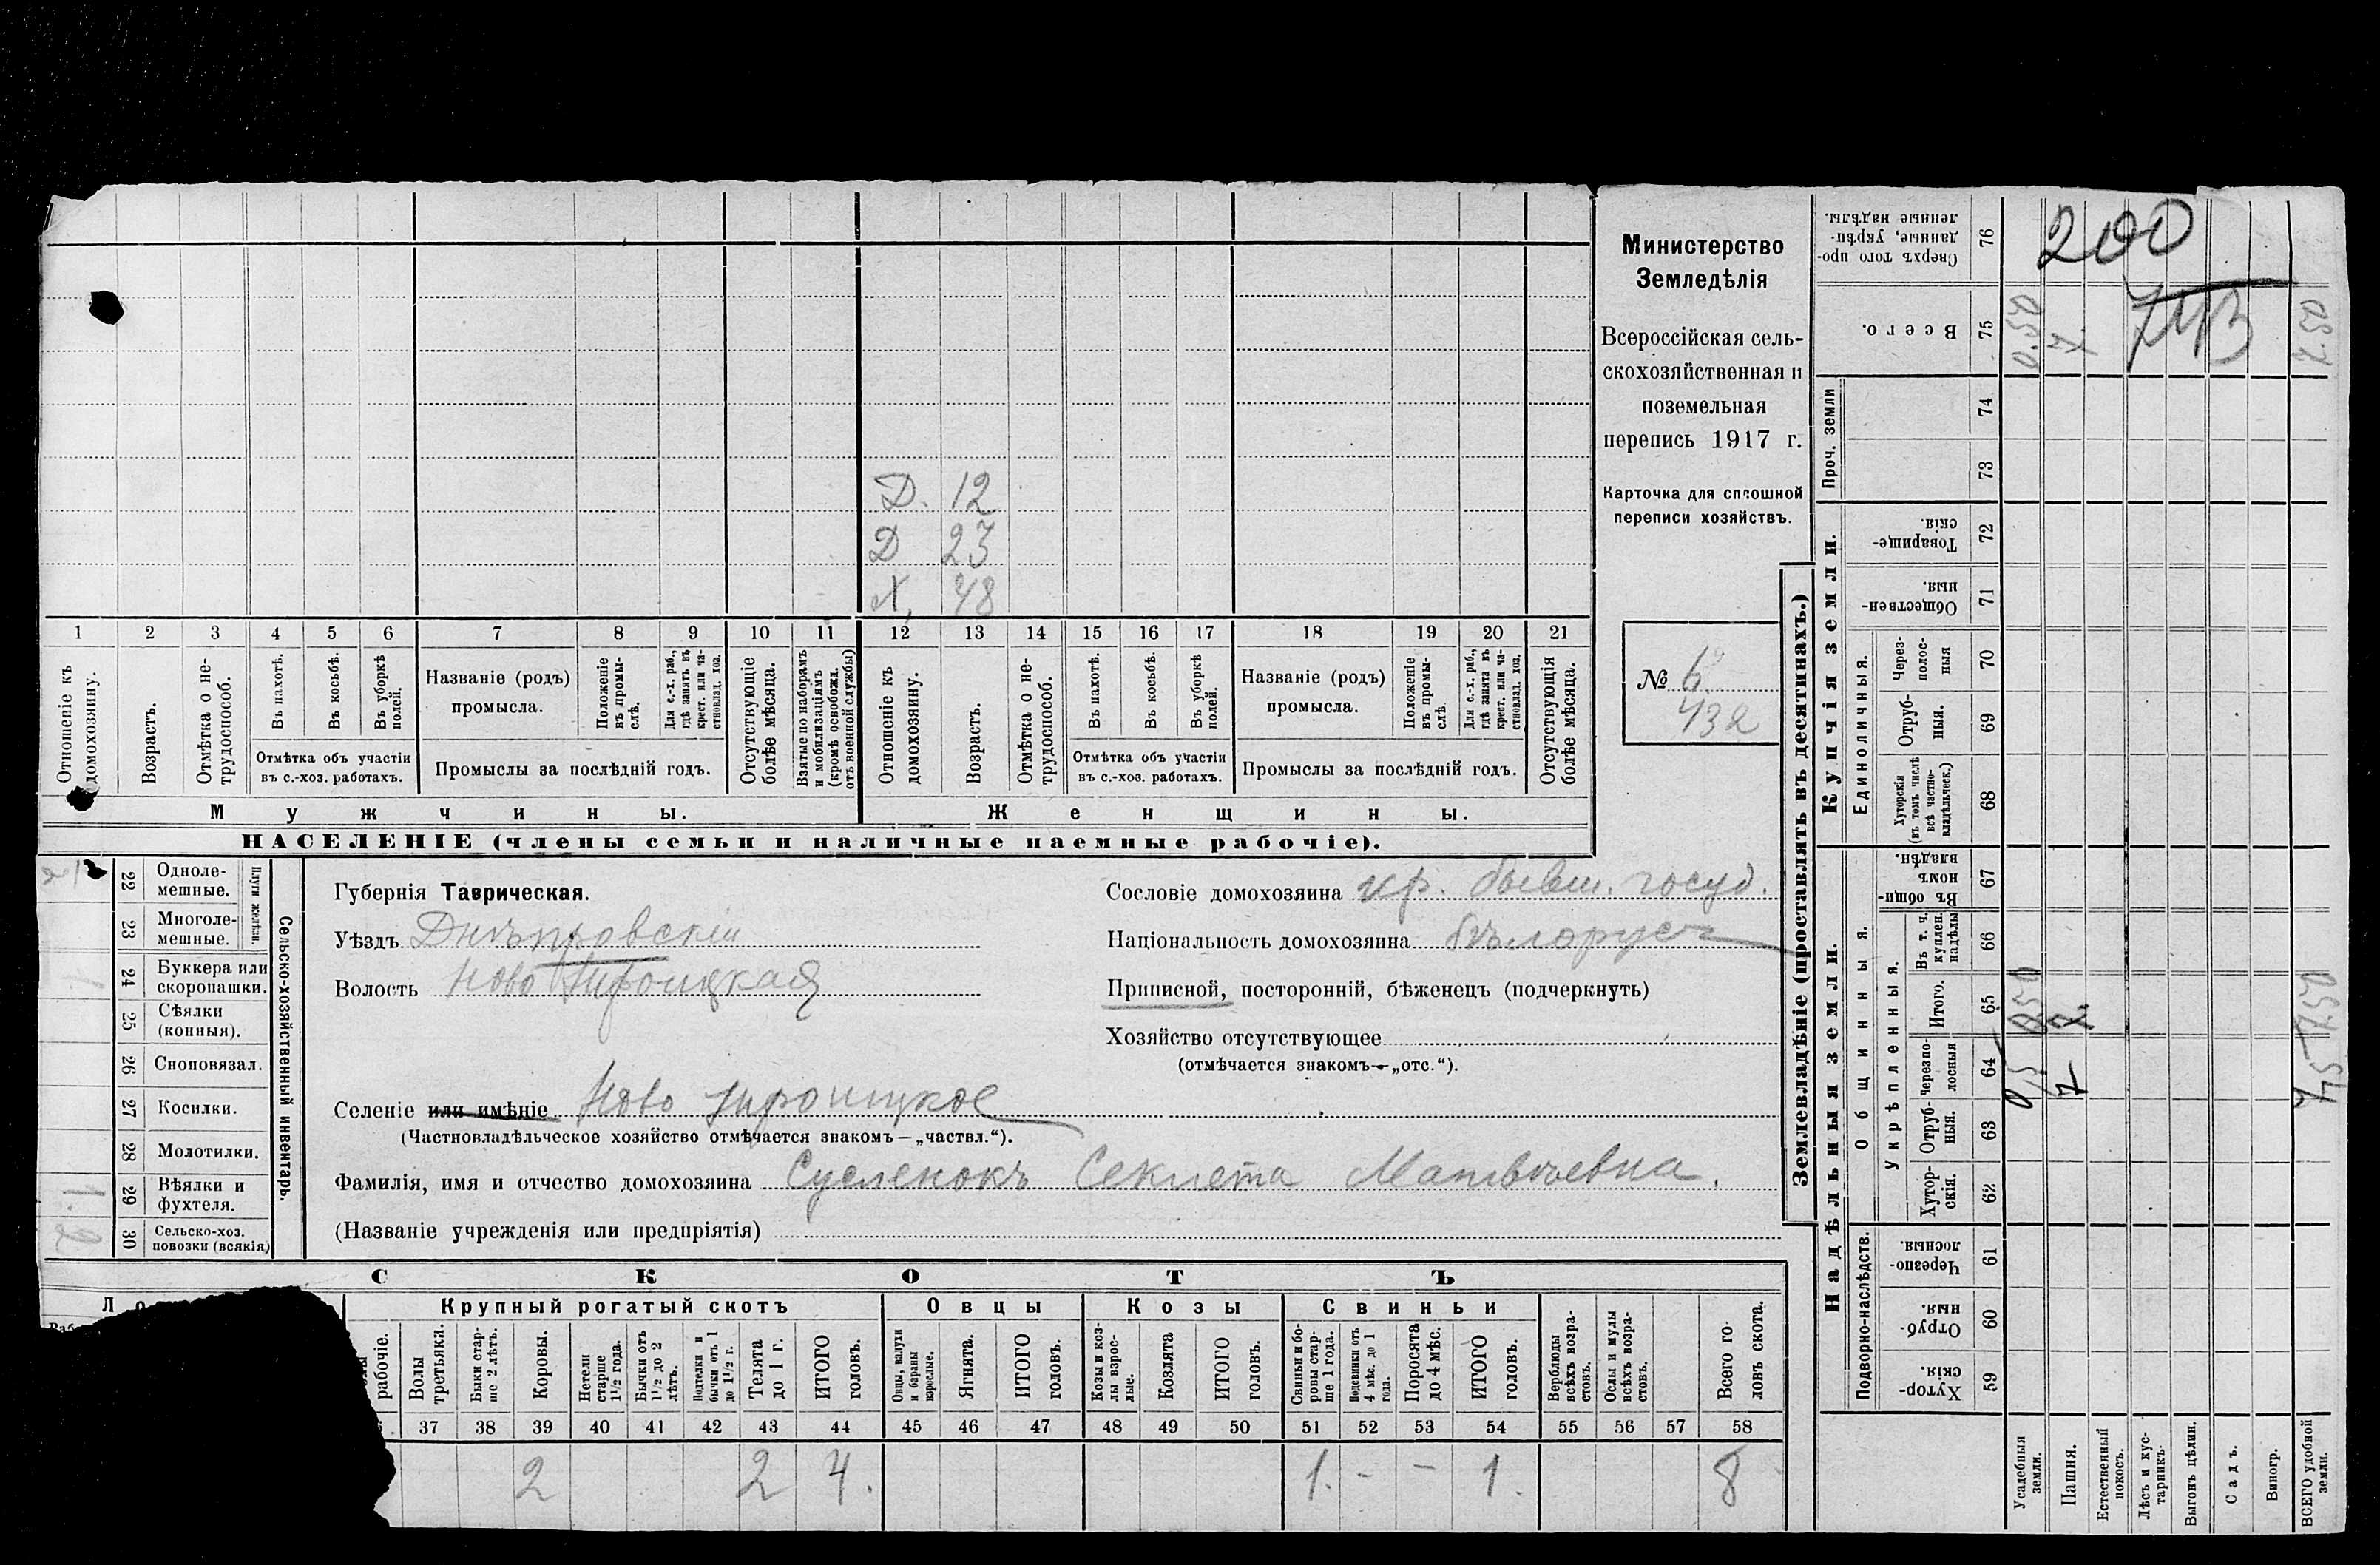 Д. 12
Д 23
Х. 48
1 2 3 4 5 6 7 8 9 10 11 12 13 14 15 16 17 18 19 20 21
Отношеніе къ домохозяину.
Возрастъ.
Отмѣтка о нетрудоспособ.
Въ пахотѣ.
Въ косьбѣ.
Въ уборкѣ полей.
Отмѣтка объ участіи
въ с.-хоз. работахъ.
Названіе (родъ)
промысла.
Положеніе въ промыслѣ.
Для с.-х. раб., гдѣ занятъ въ крест. или частновлад. хоз.
Промыслы за послѣдній годъ.
Отсутствующіе болѣе мѣсяца.
Взятые по наборамъ и мобилизаціямъ (кромѣ освобожд. отъ военной службы)
Отношеніе къ домохозяину.
Возрастъ.
Отмѣтка о нетрудоспособ.
Въ пахотѣ.
Въ косьбѣ.
Въ уборкѣ полей.
Отмѣтка объ участіи
въ с.-хоз. работахъ.
Названіе (родъ)
промысла.
Положеніе въ промыслѣ.
Для с.-х. раб., гдѣ занята въ крест. или частновлад. хоз.
Промыслы за послѣдній годъ.
Отсутствующія болѣе мѣсяца.
Мужчины.
Женщины.
НАСЕЛЕНІЕ (члены семьи и наличные наемные рабочіе).
Министерство
Земледѣлія
Всероссійская сель-
скохозяйственная и
поземельная
перепись 1917 г.
Карточка для сплошной
переписи хозяйствъ.
№ 6.
432
22 Одноле-
мешные.
23 Многоле-
мешные.
Плуги желѣзн.
24 Буккера или
скоропашки.
25 Сѣялки
(конныя).
26 Сноповязал.
27 Косилки.
28 Молотилки.
29 Вѣялки и
фухтеля.
30 Сельско-хоз.
повозки (всякія)
Сельско-хозяйственный инвентарь.
Губернія Таврическая.
Уѣздъ Днѣпровскій
Волость Ново Троицкая
Селеніе или имѣніе Ново Троицкое
(Частновладѣльческое хозяйство отмѣчается знакомъ—„частвл.“).
Фамилія, имя и отчество домохозяина Сусленокъ Секлета Матвѣевна.
(Названіе учрежденія или предпріятія)
Сословіе домохозяина кр. бывш. госуд.
Національность домохозяина бѣлорусъ
Приписной, посторонній, бѣженецъ (подчеркнуть)
Хозяйство отсутствующее
(отмѣчается знакомъ—„отс.“).
СКОТЪ
Крупный рогатый скотъ
Овцы
Козы
Свиньи
рабочіе.
Волы третьяки.
Быки старше 2 лѣтъ.
Коровы.
Нетели старше 1½ года.
Бычки отъ 1½ до 2 лѣтъ.
Подтелки и бычки отъ 1 до 1½ г.
Телята до 1 г.
ИТОГО головъ.
Овцы, валухи и бараны взрослые.
Ягнята.
ИТОГО головъ.
Козы и козлы взрослые.
Козлята
ИТОГО головъ.
Свиньи и боровы старше 1 года.
Подсвинки отъ 4 мѣс. до 1 года.
Поросята до 4 мѣс.
ИТОГО головъ.
Верблюды всѣхъ возрастовъ.
Ослы и мулы всѣхъ возрастовъ.
Всего головъ скота.
37 38 39 40 41 42 43 44 45 46 47 48 49 50 51 52 53 54 55 56 57 58
2 2 4. 1. - - 1. 8
Землевладѣніе (проставлять въ десятинахъ.)
Купчія земли.
Надѣльныя земли.
Проч. земли
Единоличныя.
Общинныя.
Укрѣпленныя.
Подворно-наслѣдств.
Сверхъ того проданные, укрѣпленные надѣлы. 76
Всего. 75
74
73
Товарищескія. 72
Общественныя. 71
Черезполосныя 70
Отрубныя. 69
Хуторскія (въ томъ числѣ всѣ частновладѣльческ.) 68
Въ общинномъ владѣн. 67
Въ т. ч. куплен. надѣлы 66
Итого. 65
Черезполосныя 64
Отрубныя. 63
Хуторскія. 62
Черезполосныя. 61
Отрубныя. 60
Хуторскія. 59
200
743
0.50
7.
7.50
Усадебныя земли.
Пашня.
Естественный покосъ.
Лѣсъ и кустарникъ.
Выгонъ цѣлин.
Садъ.
Виногр.
ВСЕГО удобной земли.